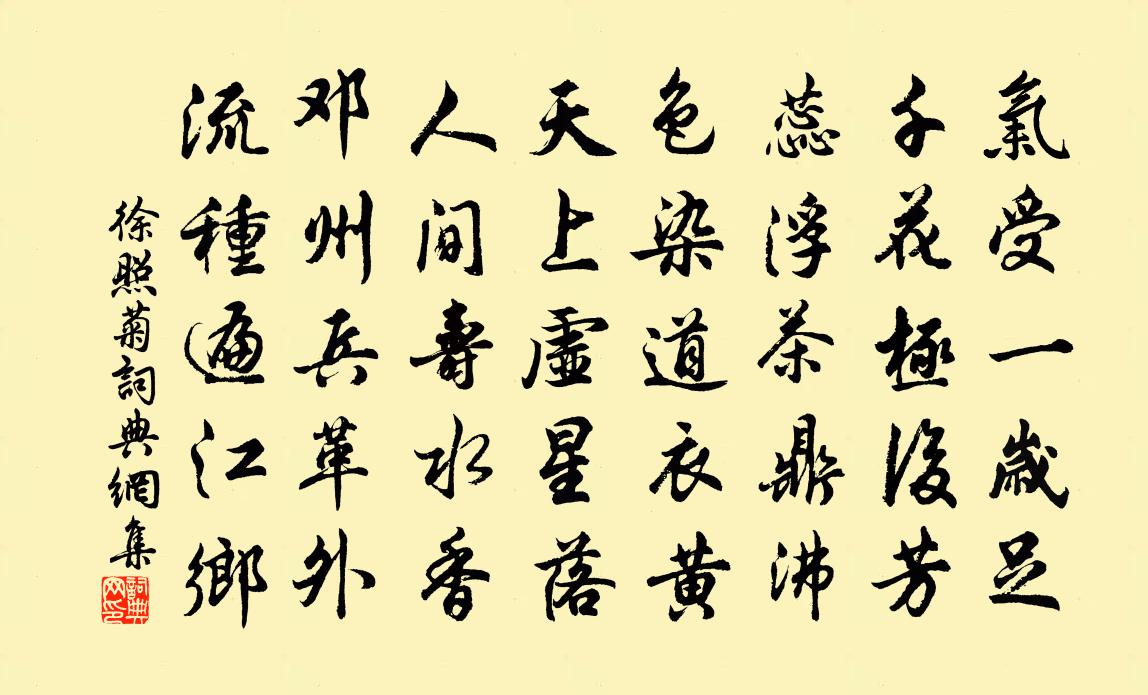 氣受一歲足
千花極後芳
蕊浮茶鼎沸
色染道衣黄
天上虛星落
人間壽水香
邓州兵革外
流種遍江鄉
徐照菊詞典網集
詞典
网印